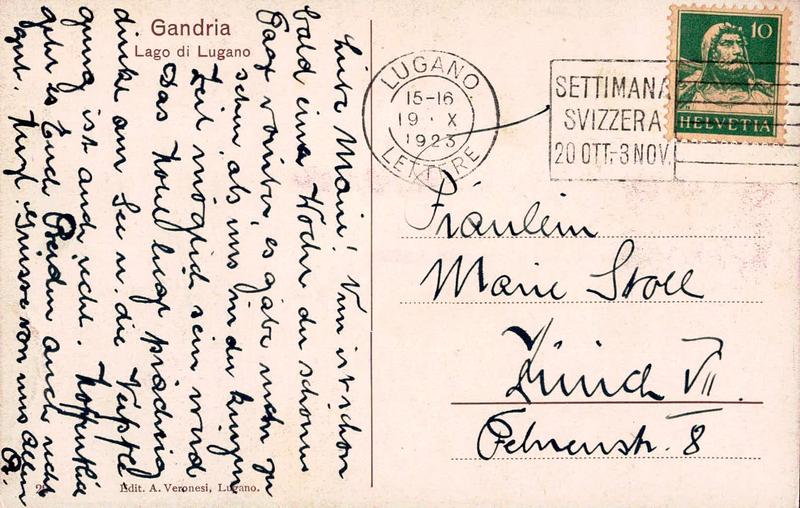 Gandria
Lago di Lugano
Liebe Marie! Nun ist schon
bald eine Woche der schönen
Tage vorüber, es gäbe mehr zu
sehen, als uns in der kurzen
Zeit möglich sein wird.
Das Hotel liegt prächtig
direkt am See u. die Verpfle
gung ist auch recht. Hoffentlich
geht es Euch Beiden auch recht
gut. Herzl. Grüsse von uns allen
LUGANO
15-16
19 · X
1923
LETTERE
SETTIMANA
SVIZZERA
20 OTT.-3 NOV.
10
HELVETIA
Fräulein
Marie Stoll
Zürich VII.
Pestalozzistr. 8
Edit. A. Veronesi, Lugano.